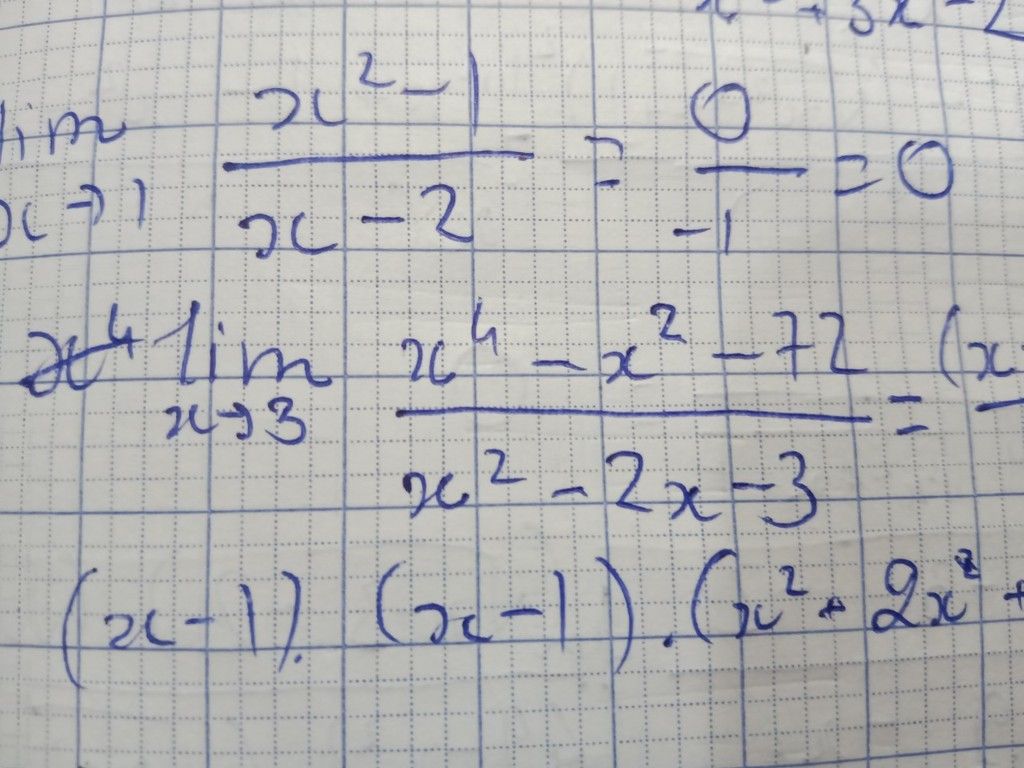 x² + 3x - 2
lim x→1 (x² - 1)/(x - 2) = 0/-1 = 0
lim x→3 (x⁴ - x² - 72)/(x² - 2x - 3) = (x
(x - 1). (x - 1) . (x² + 2x² +